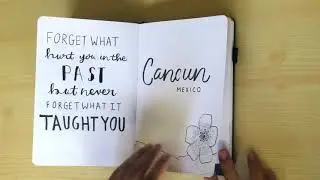 FORGET WHAT
hurt you in the
PAST
but never
FORGET WHAT IT
TAUGHT YOU
Cancun
MEXICO